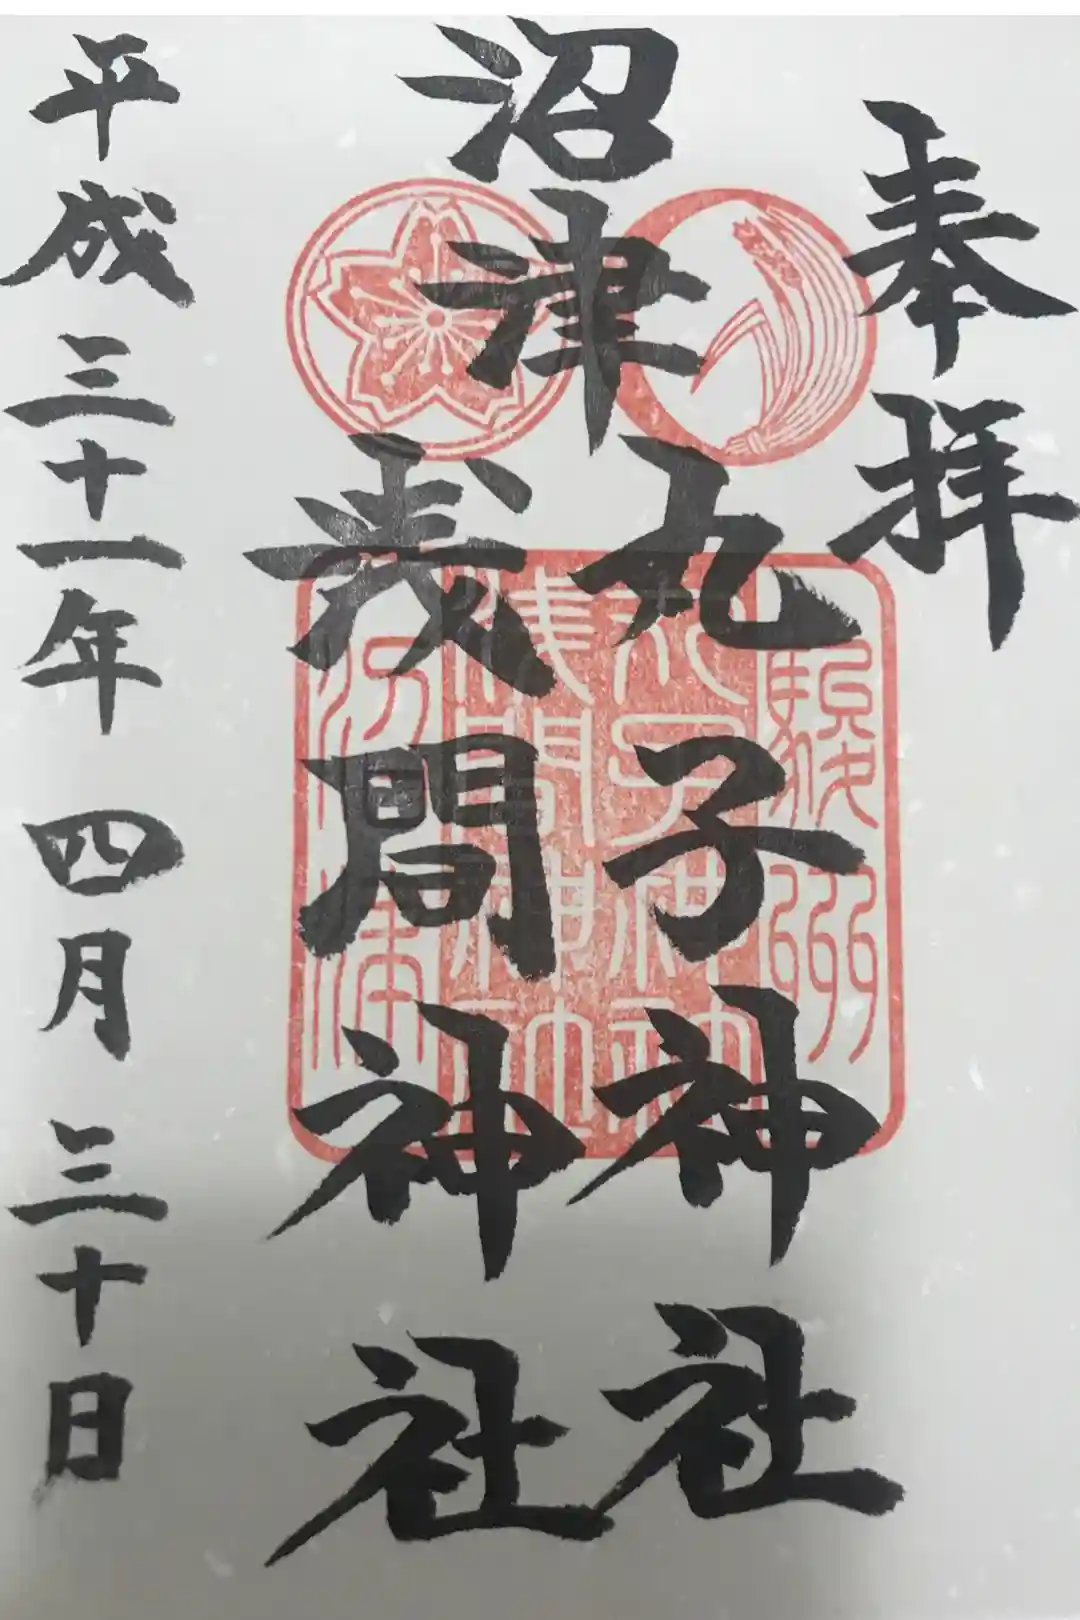 奉拝
沼津
丸子神社
浅間神社
平成三十一年四月三十日
駿州
丸子神社
浅間神社
沼津